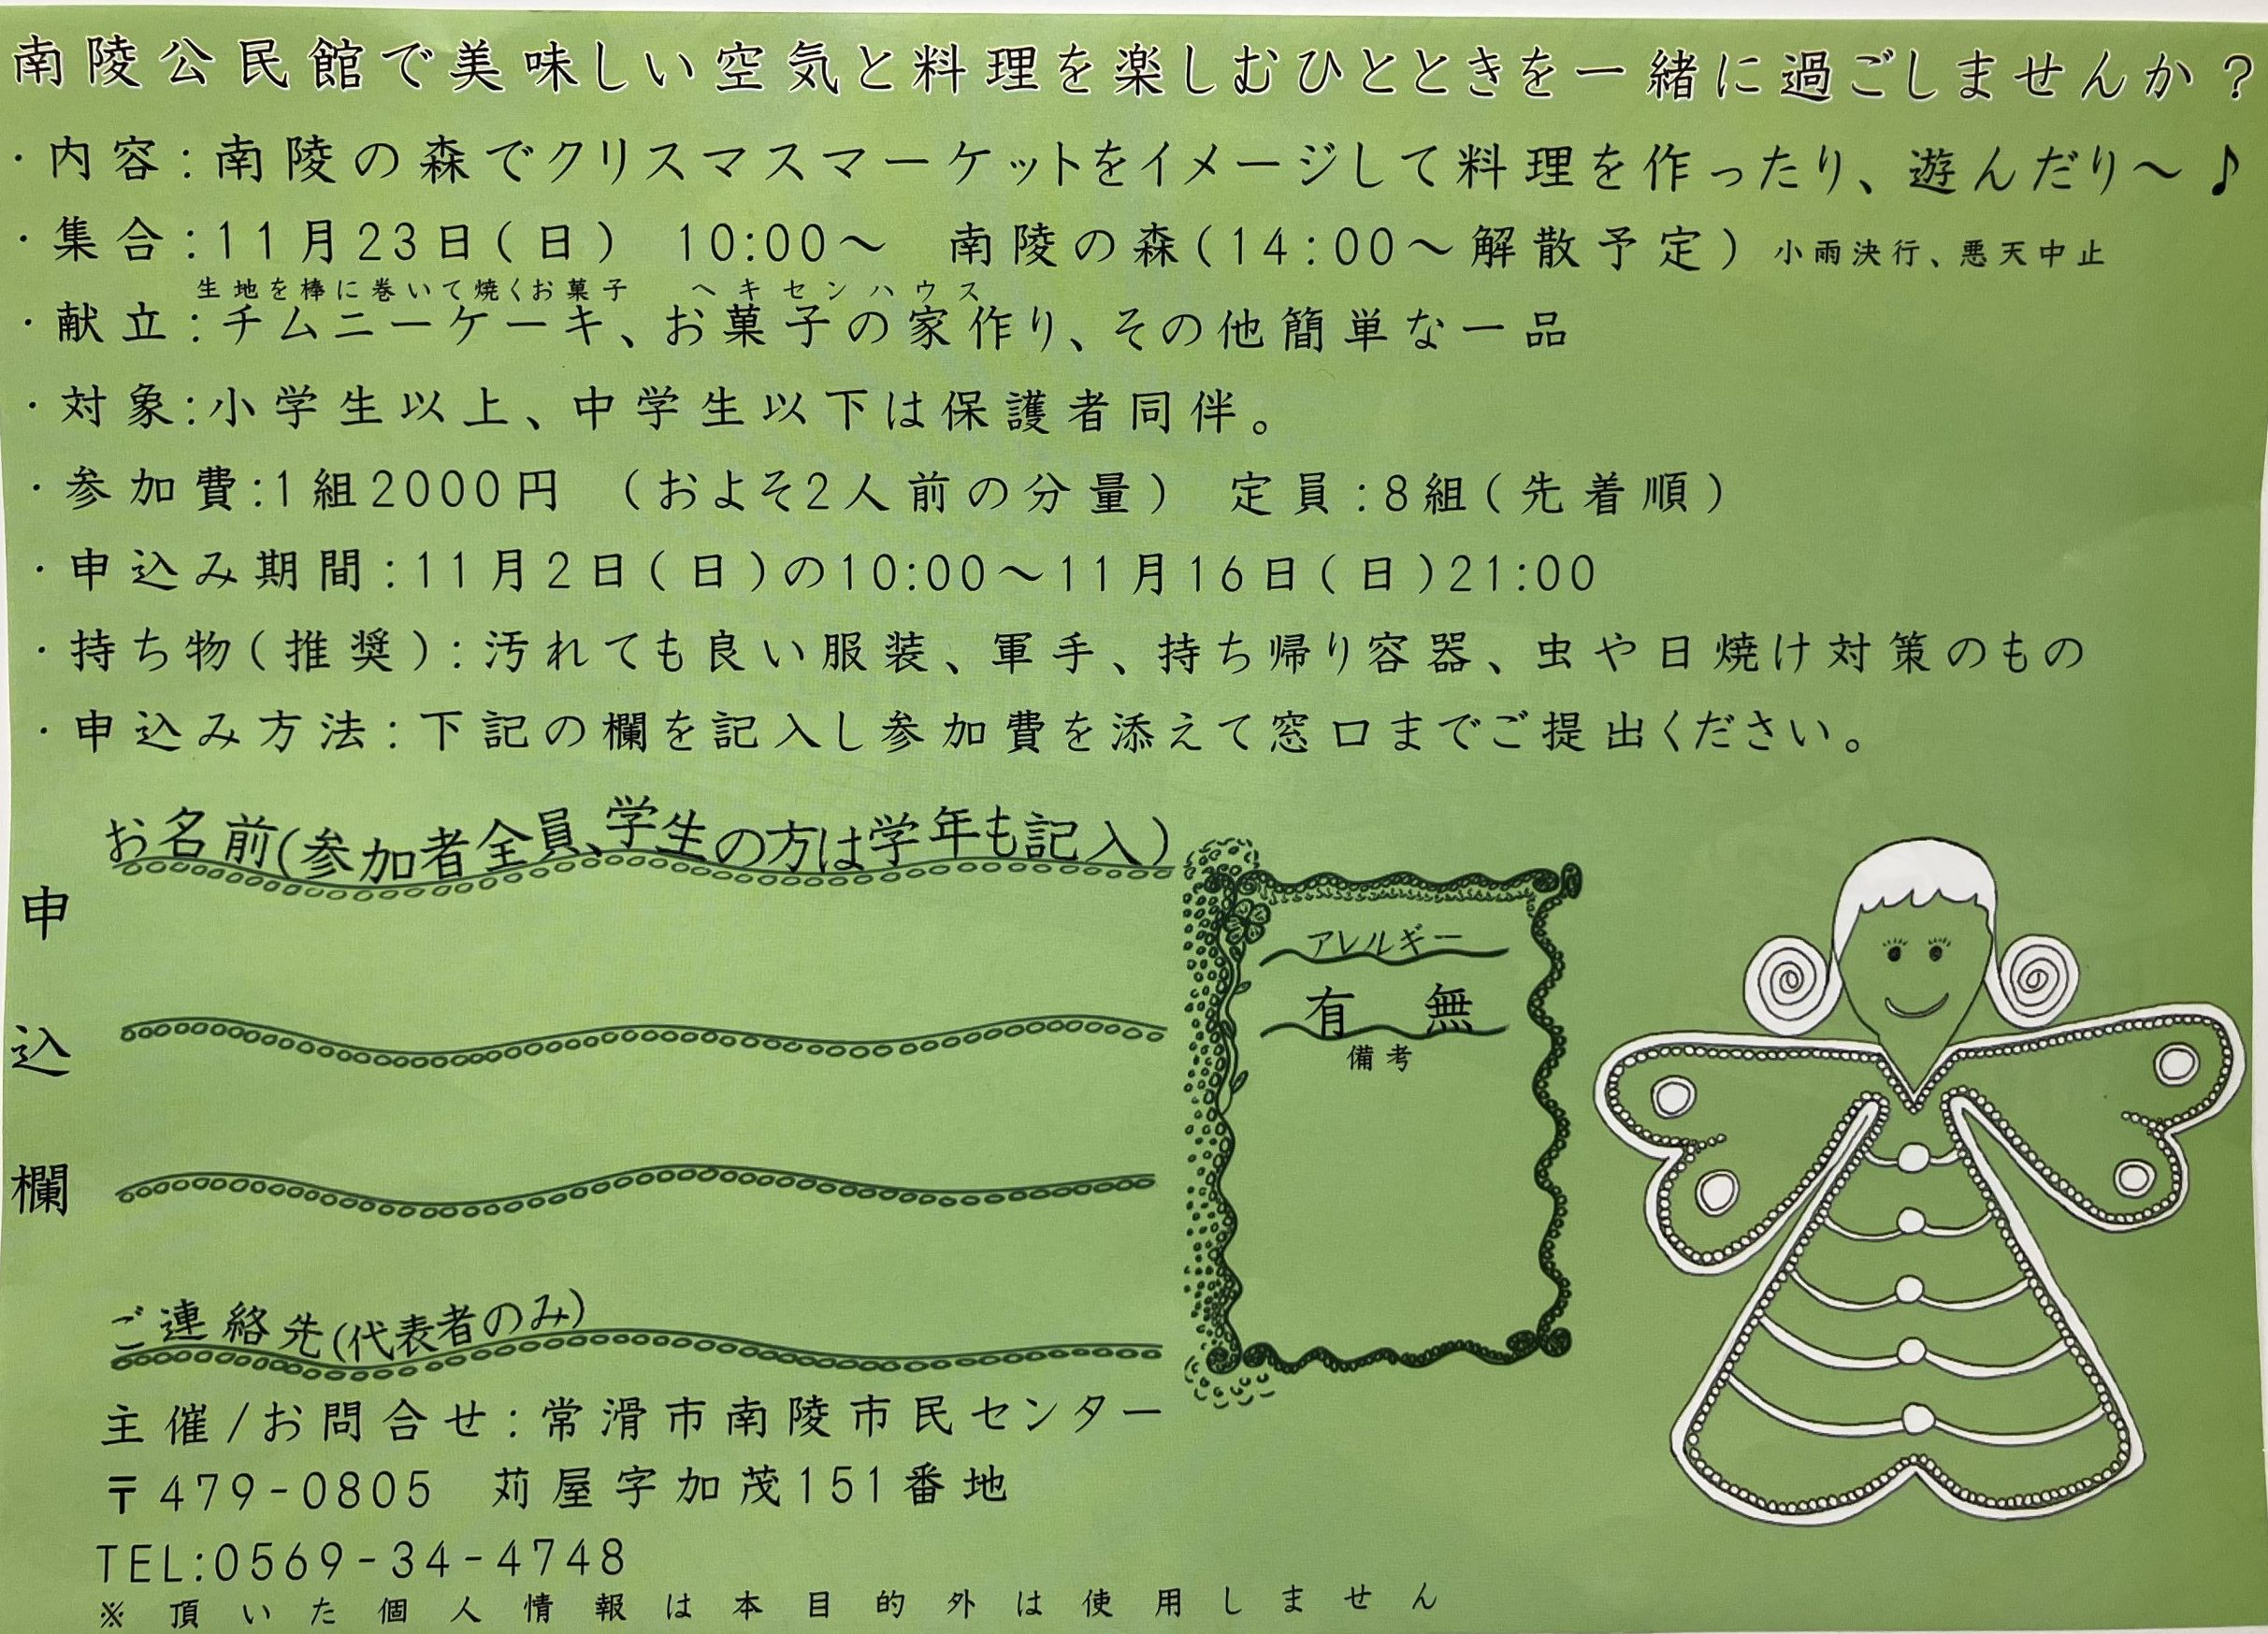 南陵公民館で美味しい空気と料理を楽しむひとときを一緒に過ごしませんか？
・内容:南陵の森でクリスマスマーケットをイメージして料理を作ったり、遊んだり～♪
・集合:11月23日(日) 10:00～ 南陵の森(14:00～解散予定) 小雨決行、悪天中止
生地を棒に巻いて焼くお菓子 ヘキセンハウス
・献立:チムニーケーキ、お菓子の家作り、その他簡単な一品
・対象:小学生以上、中学生以下は保護者同伴。
・参加費:1組2000円 (およそ2人前の分量) 定員:8組(先着順)
・申込み期間:11月2日(日)の10:00～11月16日(日)21:00
・持ち物(推奨):汚れても良い服装、軍手、持ち帰り容器、虫や日焼け対策のもの
・申込み方法:下記の欄を記入し参加費を添えて窓口までご提出ください。
申込欄
お名前(参加者全員、学生の方は学年も記入)
アレルギー
有 無
備考
ご連絡先(代表者のみ)
主催/お問合せ:常滑市南陵市民センター
〒479-0805 苅屋字加茂151番地
TEL:0569-34-4748
※頂いた個人情報は本目的外は使用しません